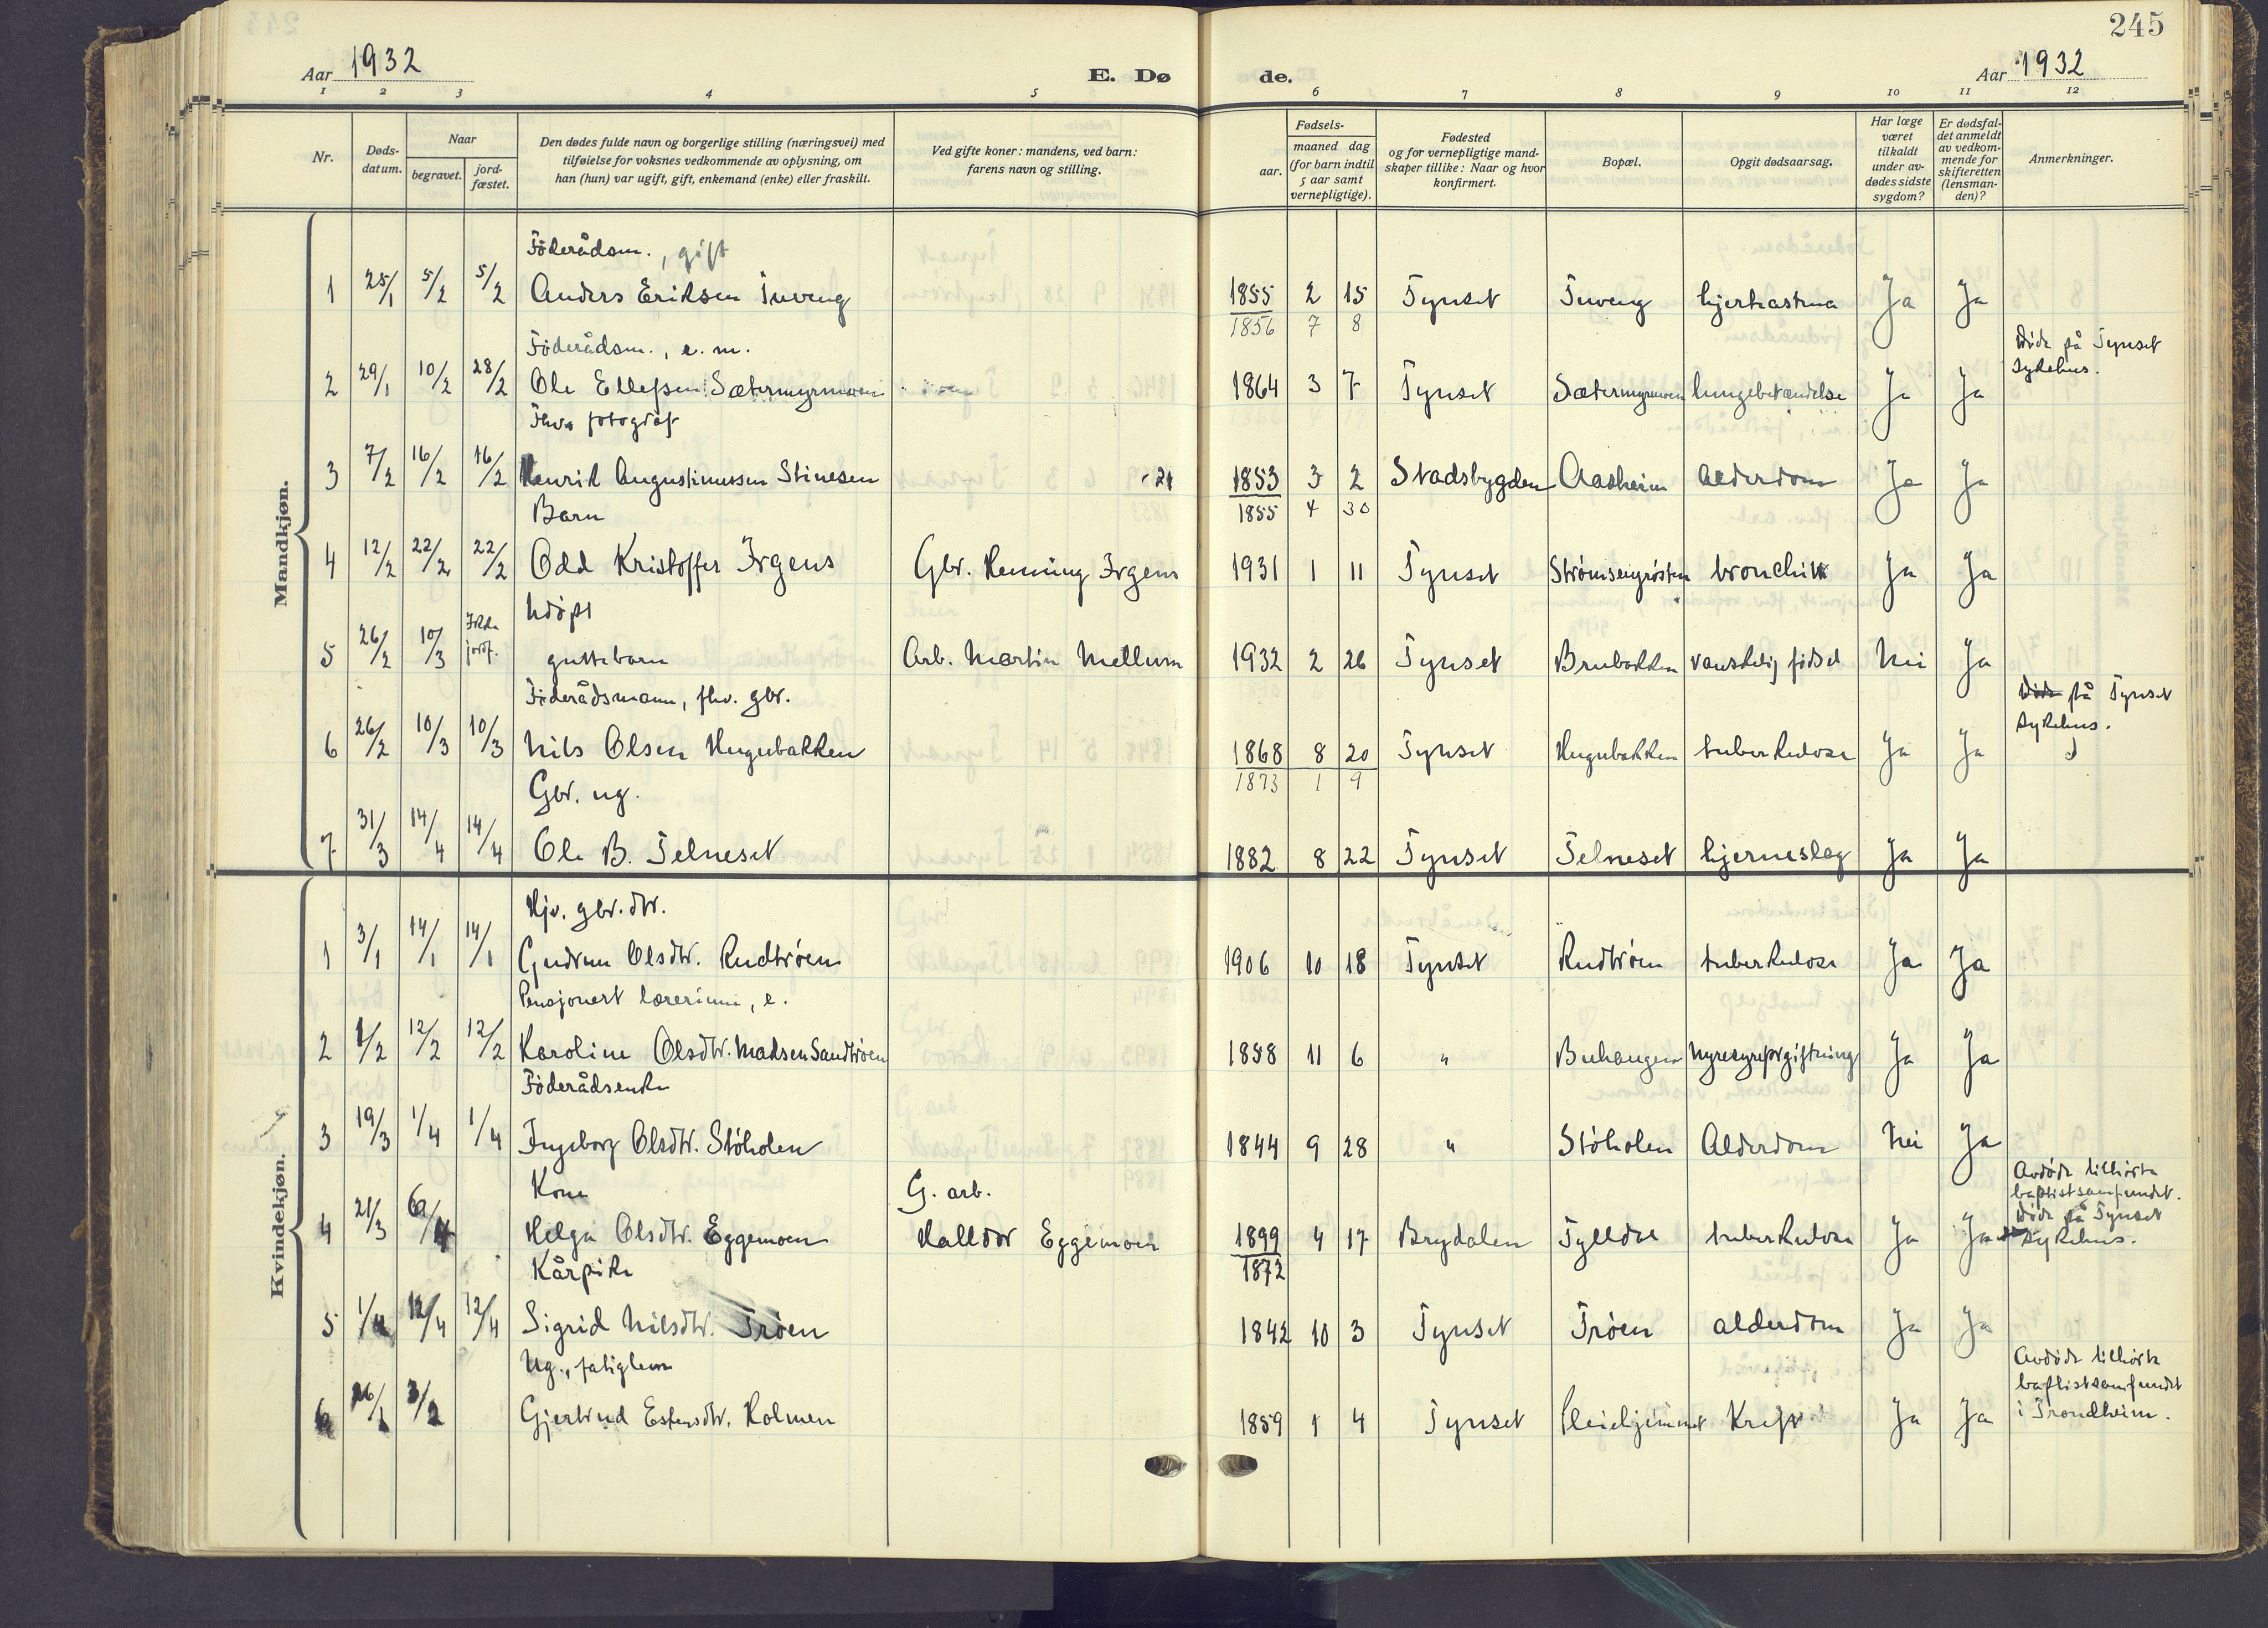 245
Aar 1932
E. Dø
de.
Aar 1932
1 2 3 4 5 6 7 8 9 10 11 12
Nr.
Døds-
datum.
Naar
begravet.
jord-
fæstet.
Den dødes fulde navn og borgerlige stilling (næringsvei) med
tilføielse for voksnes vedkommende av oplysning, om
han (hun) var ugift, gift, enkemand (enke) eller fraskilt.
Ved gifte koner: mandens, ved barn:
farens navn og stilling.
Fødsels-
aar.
maaned dag
(for barn indtil
5 aar samt
vernepligtige).
Fødested
og for vernepligtige mand-
skaper tillike: Naar og hvor
konfirmert.
Bopæl.
Opgit dødsaarsag.
Har læge
været
tilkaldt
under av-
dødes sidste
sygdom?
Er dødsfal-
det anmeldt
av vedkom-
mende for
skifteretten
(lensman-
den)?
Anmerkninger.
Mandkjøn.
Föderådsm., gift
1 25/1 5/2 5/2 Anders Eriksen Tuveng 1855 2 15 Tynset Tuveng hjerteastma Ja Ja
1856 7 8
Föderådsm., e. m.
Døde på Tynset
Sykehus.
2 29/1 10/2 28/2 Ole Ellefsen Sætermyrmoen 1864 3 7 Tynset Sætermyrmoen lungebetændelse Ja Ja
Fhv. fotograf
3 7/2 16/2 16/2 Henrik Augustinussen Stinesen - 21 1853 3 2 Stadsbygden Aasheim Alderdom Ja Ja
1855 4 30
Barn
4 12/2 22/2 22/2 Odd Kristoffer Irgens Gbr. Henning Irgens 1931 1 11 Tynset Strømsengrøsten bronchitt Ja Ja
Udöpt
5 26/2 10/3 Ikke jordf. guttebarn Arb. Martin Mellum 1932 2 26 Tynset Brubakken vanskelig fødsel Nei Ja
Föderådsmann, fhv. gbr.
Døde på Tynset
sykehus.
6 26/2 10/3 10/3 Nils Olsen Hugubakken 1868 8 20 Tynset Hugubakken tuberkulose Ja Ja
1873 1 9
Gbr. ug.
7 31/3 14/4 14/4 Ole B. Telneset 1882 8 22 Tynset Telneset hjerneslag Ja Ja
Kvindekjøn.
Hjv. gbr. dtr.
1 3/1 14/1 14/1 Gudrun Olsdtr. Rudtrøen 1906 10 18 Tynset Rudtrøen tuberkulose Ja Ja
Pensjonert lærerinne, e.
2 1/2 12/2 12/2 Karoline Olsdtr. Madsen Sandtrøen 1858 11 6 " Buhaugen Nyresyreforgiftning Ja Ja
Föderådsenke
3 19/3 1/4 1/4 Ingeborg Olsdtr. Støholen 1844 9 28 " Støholen Alderdom Nei Ja
Kone G. arb.
Avdøde tilhørte
baptistsamfundet.
Døde på Tynset
sykehus.
4 21/3 6/4 Helga Olsdtr. Eggemoen Halldor Eggemoen 1899 4 17 Brydalen Tylldal tuberkulose Ja Ja
1872
Kårpike
5 1/4 12/4 12/4 Sigrid Nilsdtr. Trøen 1842 10 3 Tynset Trøen alderdom Ja Ja
Ug., fatiglem
Avdøde tilhørte
baptistsamfundet
i Trondheim.
6 26/1 3/2 Gjertrud Estensdtr. Holmen 1859 1 4 Tynset Pleiehjemmet Kreft Ja Ja